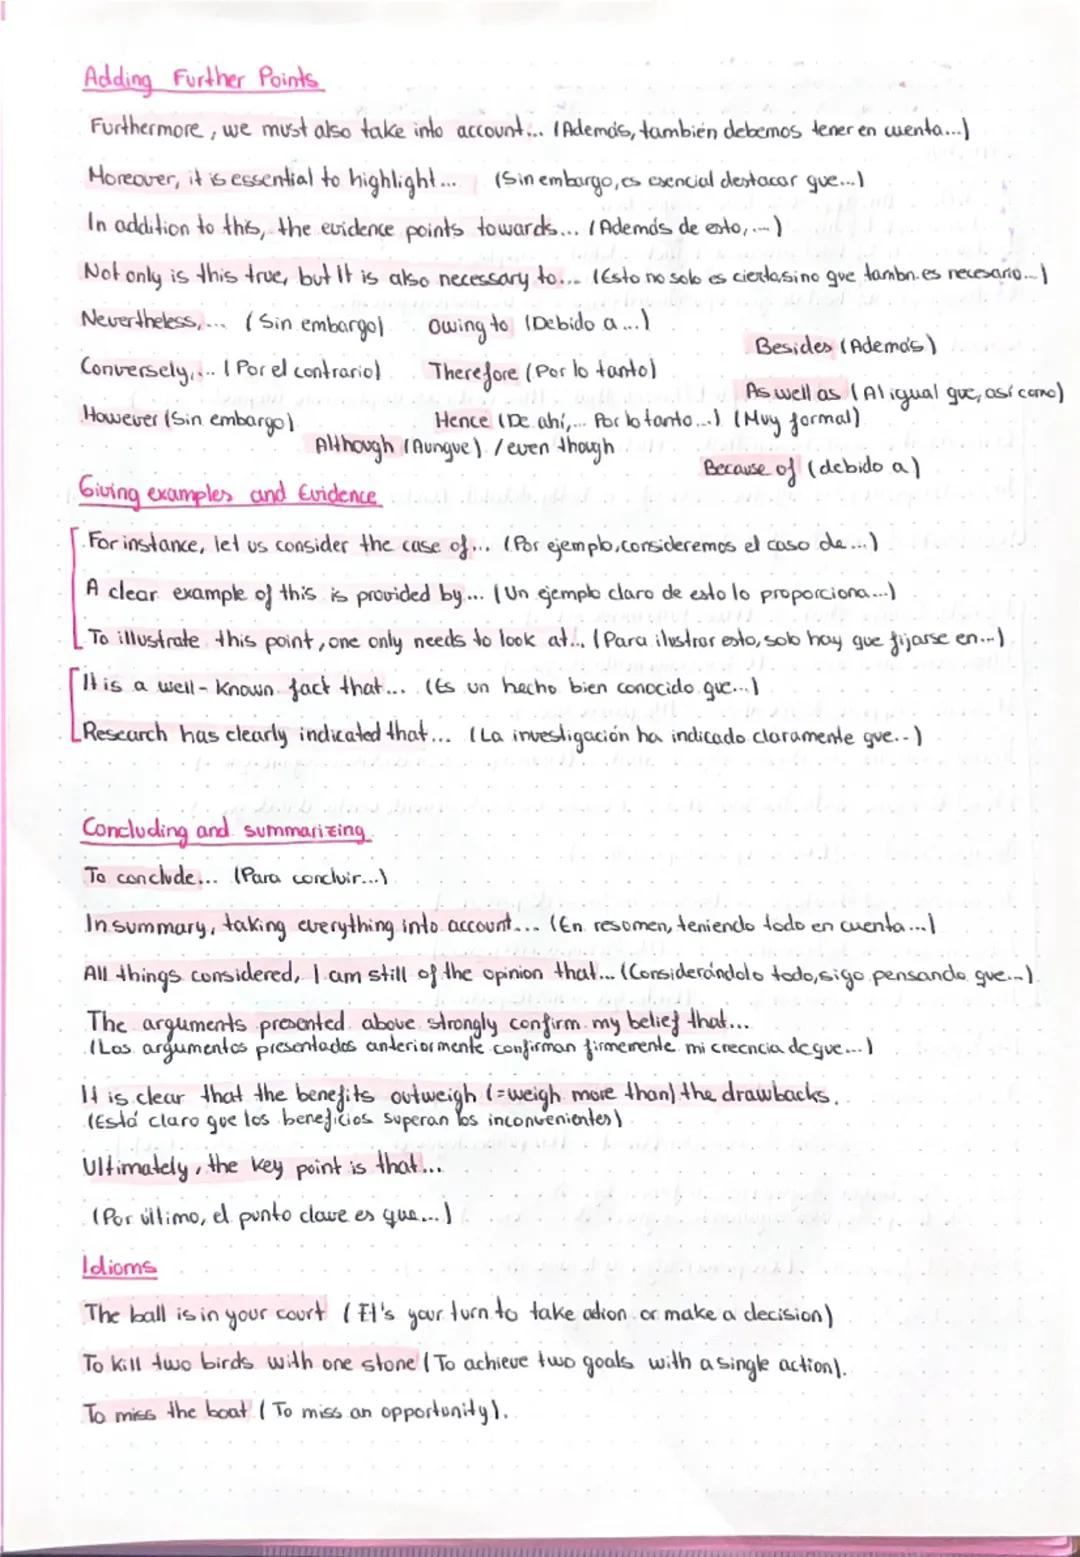 Adding Further Points
Furthermore, we must also take into account... (Además, también debemos tener en cuenta...)
Moreover, it is essential to highlight... (Sin embargo, es esencial destacar que...)
In addition to this, the evidence points towards... (Además de esto,...)
Not only is this true, but it is also necessary to... (Esto no solo es cierto, sino que tambn. es necesario...)
Nevertheless,... (Sin embargo) Owing to (Debido a...)
Besides (Además)
Conversely,... (Por el contrario) Therefore (Por lo tanto)
As well as (Al igual que, así como)
However (Sin embargo) Hence (De ahí,... Por lo tanto...) (Muy formal)
Although (Aunque) / even though
Because of (debido a)
Giving examples and Evidence
For instance, let us consider the case of... (Por ejemplo, consideremos el caso de...)
A clear example of this is provided by... (Un ejemplo claro de esto lo proporciona...)
To illustrate this point, one only needs to look at... (Para ilustrar esto, solo hay que fijarse en...)
It is a well-known fact that... (Es un hecho bien conocido que...)
Research has clearly indicated that... (La investigación ha indicado claramente que...)
Concluding and summarizing
To conclude... (Para concluir...)
In summary, taking everything into account... (En resumen, teniendo todo en cuenta...)
All things considered, I am still of the opinion that... (Considerándolo todo, sigo pensando que...)
The arguments presented above strongly confirm my belief that...
(Los argumentos presentados anteriormente confirman firmemente mi creencia de que...)
It is clear that the benefits outweigh (=weigh more than) the drawbacks.
(Está claro que los beneficios superan los inconvenientes)
Ultimately, the key point is that...
(Por último, el punto clave es que...)
Idioms
The ball is in your court (It's your turn to take action or make a decision)
To kill two birds with one stone (To achieve two goals with a single action).
To miss the boat (To miss an opportunity).